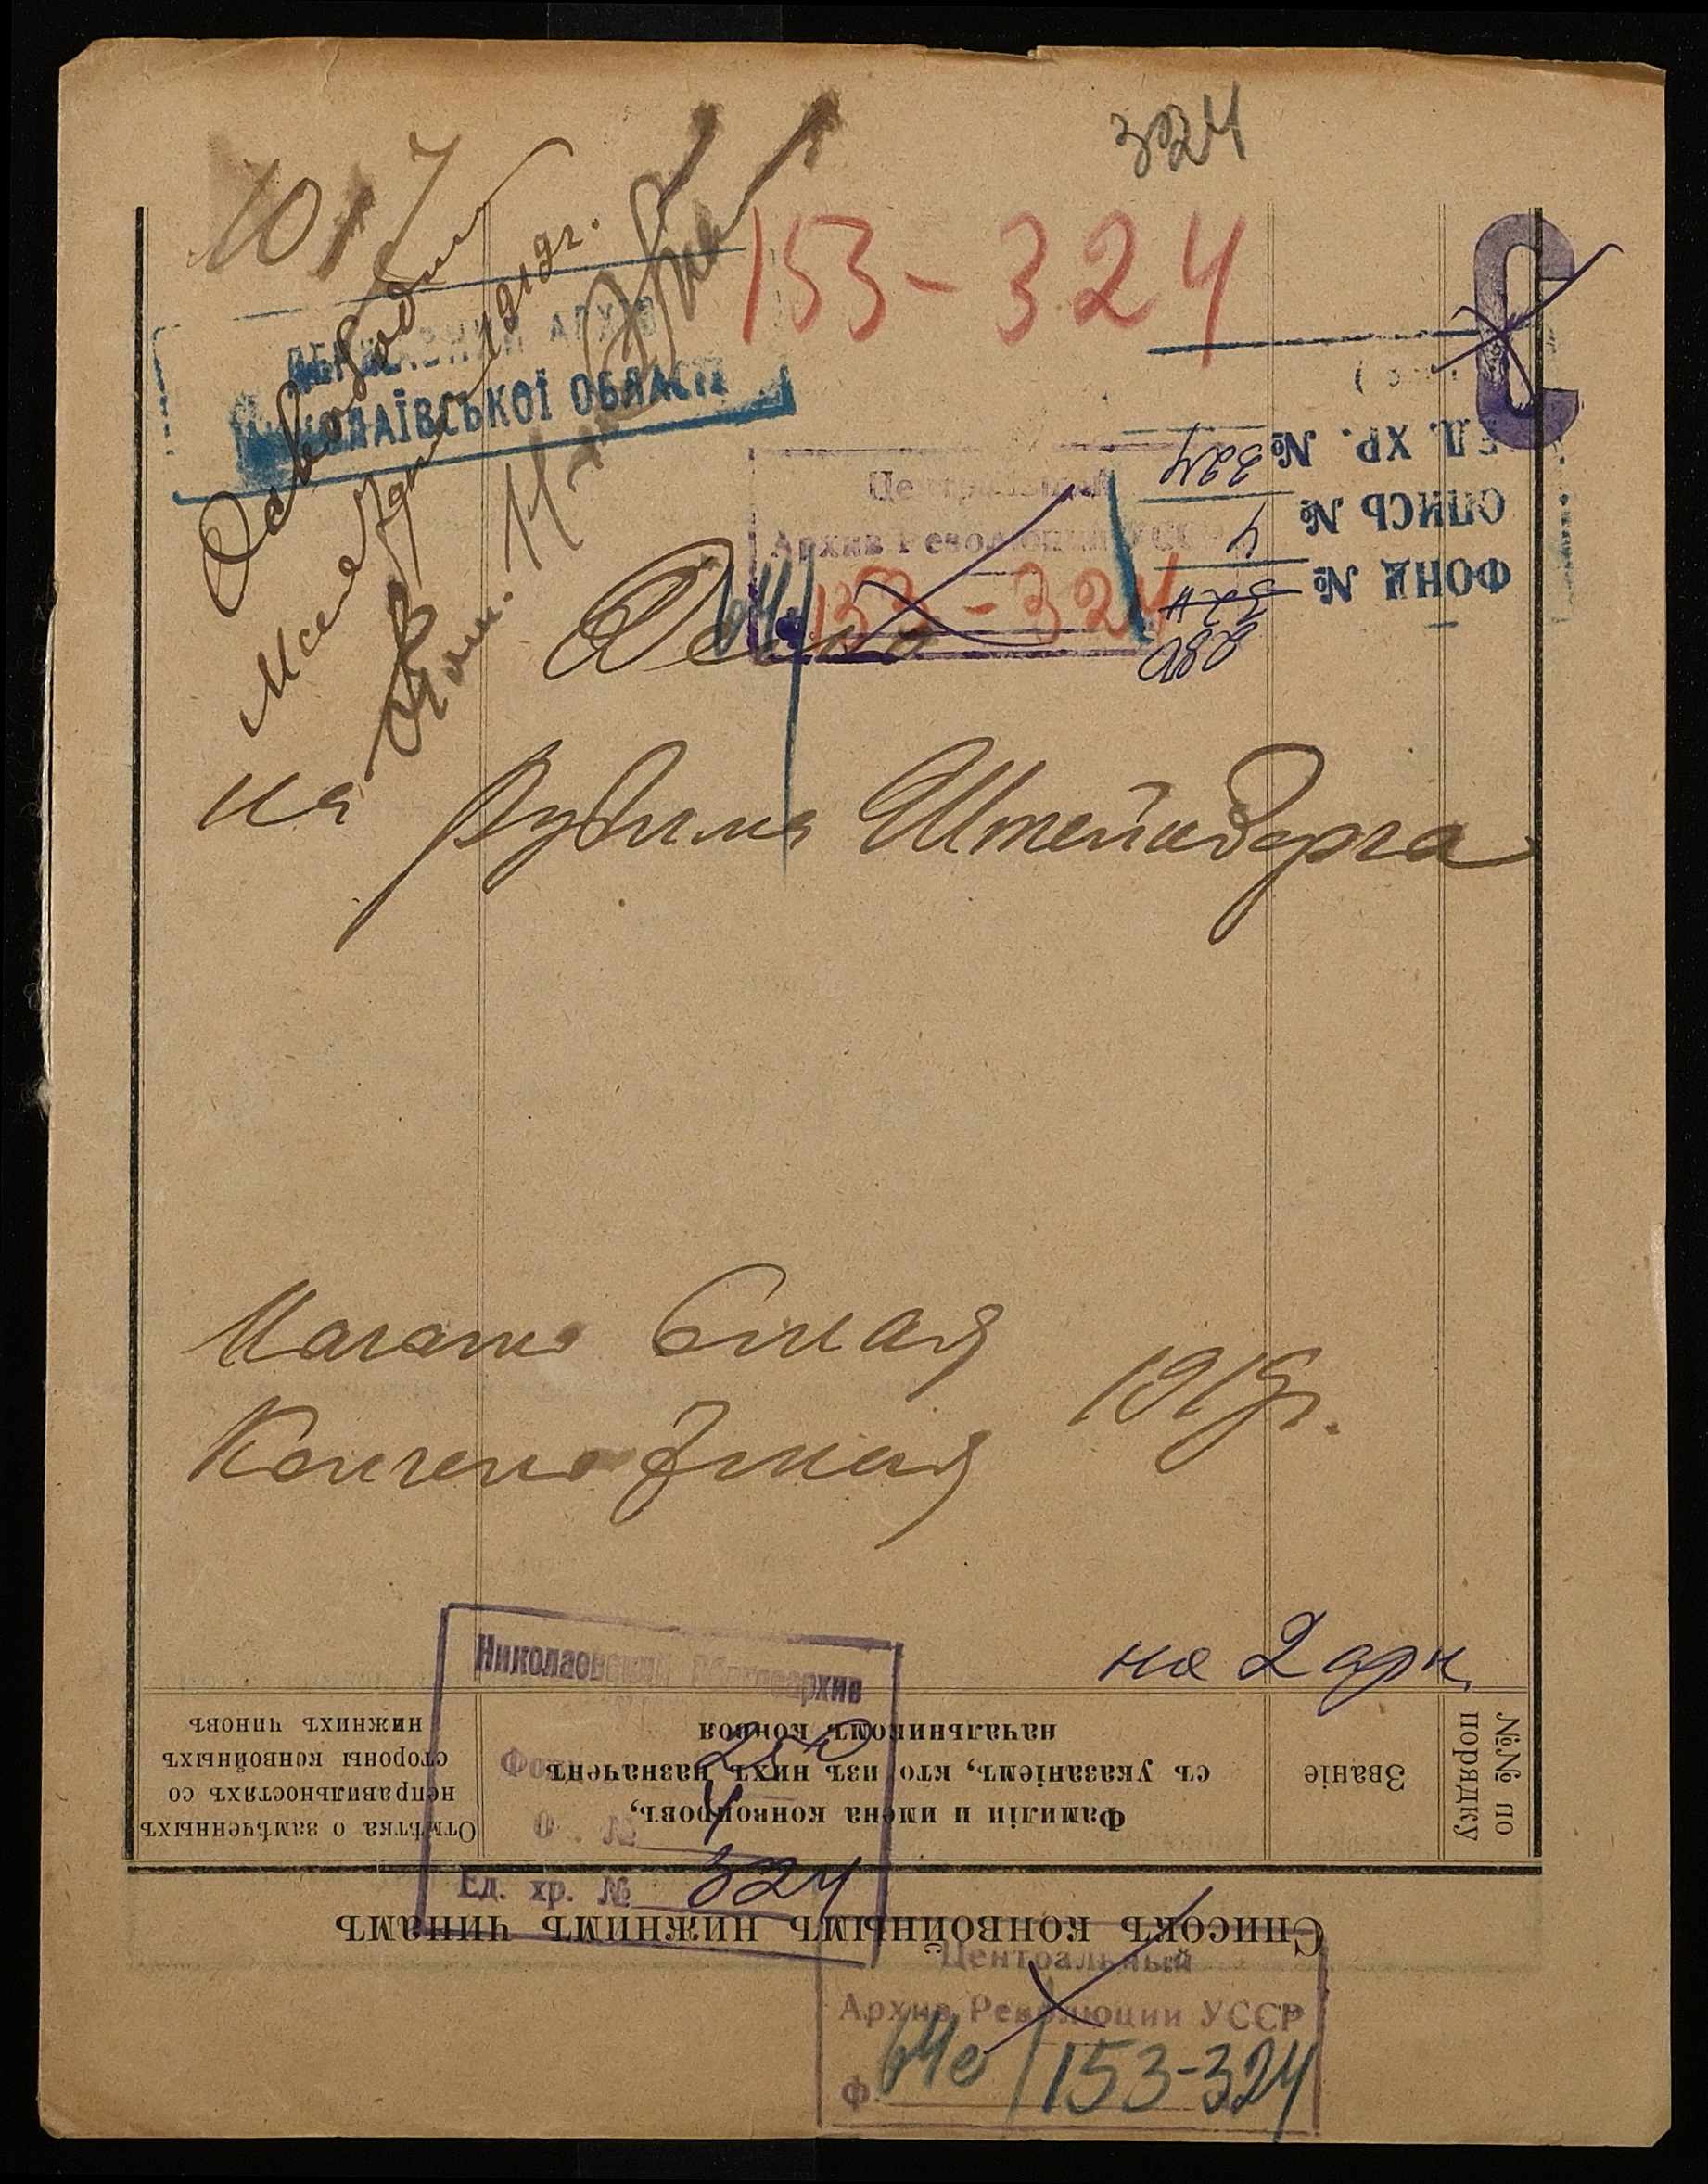 324
107
153-324
ДЕРЖАВНИЙ АРХІВ
МИКОЛАЇВСЬКОЇ ОБЛАСТІ
Освободить
ФОНД № 280
ОПИСЬ № 4
ЕД. ХР. № 324
Центральный
Архив Революции УССР
153-324
Дело
на Рувима Штейнберга
Начато 6 мая
1919 г.
Кончено 7 мая
на 2 арк
Николаевский Облгосархив
Фонд № 280
Оп. № 4
Ед. хр. № 324
Списокъ конвойнымъ нижнимъ чинамъ
№№ по порядку
Званіе
Фамиліи и имена конвоировъ,
съ указаніемъ, кто изъ нихъ назначенъ
начальникомъ конвоя
Отмѣтка о замѣченныхъ
неправильностяхъ со
стороны конвойныхъ
нижнихъ чиновъ
Центральный
Архив Революции УССР
Ф. 153-324